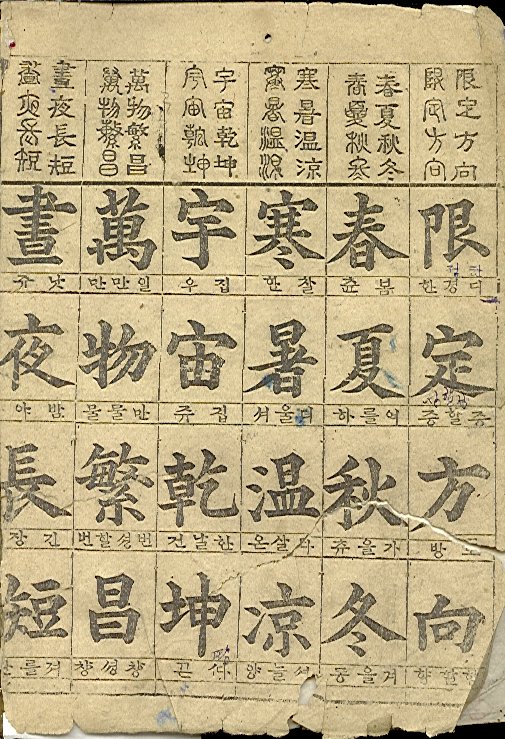 限定方向
限定方向
限
디경한
定
方
방
向
春夏秋冬
春夏秋冬
春
봄츈
夏
여를하
秋
가을츄
冬
겨을동
寒暑温凉
寒暑温凉
寒
찰한
暑
더울셔
温
다살온
凉
셔늘양
宇宙乾坤
宇宙乾坤
宇
집우
宙
집쥬
乾
한날건
坤
萬物繁昌
萬物繁昌
萬
일만만
物
만물물
繁
번셩할번
昌
창셩창
晝夜長短
晝夜長短
晝
낫쥬
夜
밤야
長
긴장
短